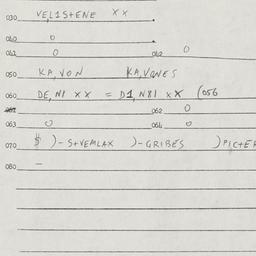 030 VEL1STENE XX
040 0
041 0 042 0
050 KA,VON KA,VONES
060 DE,N81 XX = D1,N81 XX (056
061 062 0
063 0 064 0
070 $ )-S+VEMLAX )-GRIBES )PIC+EA
080 —